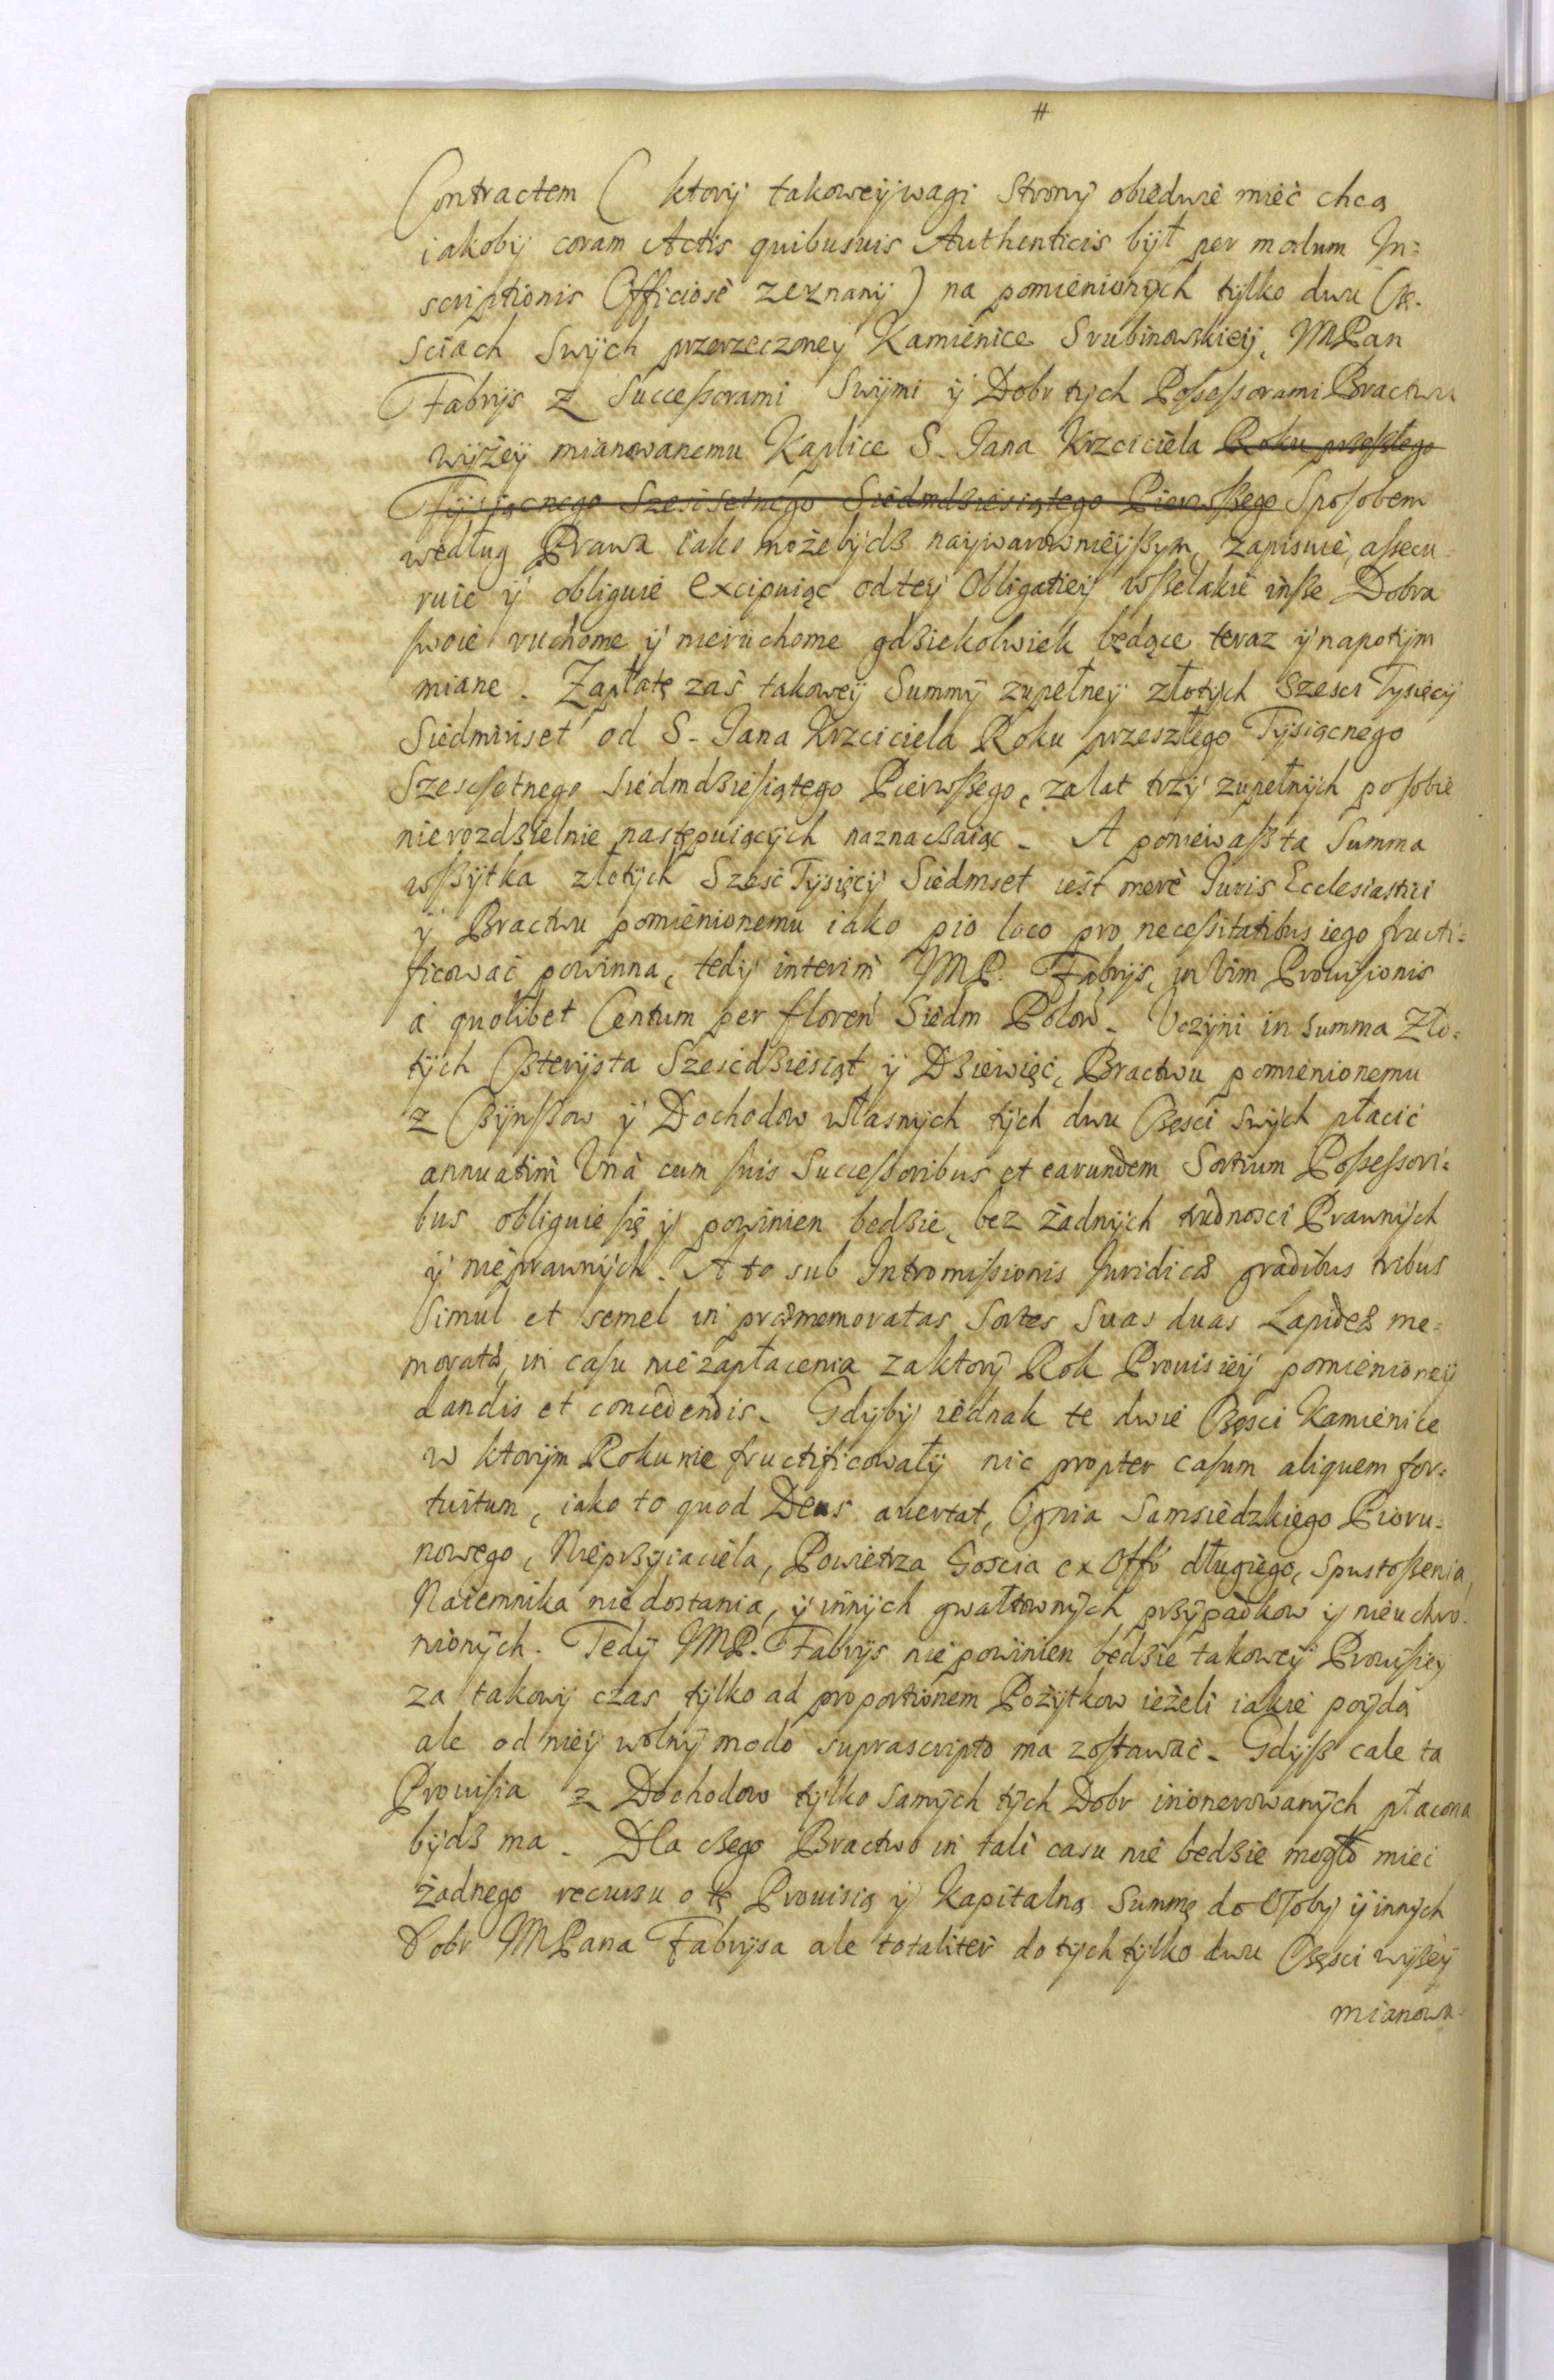 #
Contractem ( ktory takoweÿ wagi Stronÿ obiedwie miec chcą
iakobÿ coram Actis quibusuis Authenticis bÿł per modum In=
scriptionis Officiosè zeznanÿ ) na pomienionÿch tÿlko dwu Czę-
sciach Swÿch przerzeczoneÿ Kamienice Srubinowskieÿ, MPan
Fabrÿs z Succeßorami Swÿmi ÿ Dobr tÿch Poßeßorami Bractwu
wÿżeÿ mianowanemu Kaplice S. Jana Krzciciela Roku przeszłego
Tÿsiącnego Szescsetnego Siedmdziesiątego Pierwszego Sposobem
według Prawa iako może bÿdz naÿwarownieÿszÿm, Zapisuie, assecu-
ruie ÿ obliguie excipuiąc od teÿ Obligatieÿ wszelakie insze Dobra
swoie ruchome ÿ nieruchome gdziekolwiek będące teraz ÿ napotÿm
miane. Zapłatę zaś takoweÿ Summÿ zupełneÿ złotÿch Szesci Tÿsięcÿ
Siedmiuset od S. Jana Krzciciela Roku przeszłego Tÿsiącnego
Szescsetnego Siedmdziesiątego Pierwszego, za lat trzÿ zupełnÿch po sobie
nierozdzielnie następuiącÿch naznaczaiąc. A poniewasz ta Summa
wszÿtka złotÿch Szesc Tÿsięcÿ Siedmset iest merè Juris Ecclesiastici
ÿ Bractwu pomienionemu iako pio loco pro necessitatibus iego fructi=
ficować powinna, tedÿ interim MP. Fabrÿs, in Vim Prouisionis
à quolibet Centum per floren Siedm Polow. Uczÿni in Summa Zło=
tÿch Czterÿsta Szescdziesiąt ÿ Dziewięć, Bractwu pomienionemu
z Czÿnszow ÿ Dochodow własnÿch tÿch dwu Częsci swÿch płacić
annuatim Vnà cum suis Successoribus et earundem Sortium Possessori=
bus obliguie się ÿ powinien bedzie, bez żadnÿch trudnosci Prawnÿch
ÿ nieprawnÿch. A to sub Intromissionis Juridicæ gradibus tribus
simul et semel in præmemoratas Sortes Suas duas Lapideæ me=
moratæ, in casu niezapłacenia za ktorÿ Rok Prouisieÿ pomienioneÿ
dandis et concedendis. Gdÿbÿ iednak te dwie Częsci Kamienice
w ktorÿm Roku nie fructificowałÿ nic propter casum aliquem for=
tuitum, iako to quod Deus auertat, Ognia Samsiedzkiego Pioru=
nowego, Nieprzÿiaciela, Powietrza Goscia ex Offo długiego, Spustoszenia,
Naiemnika niedostania, ÿ innÿch gwałtownÿch przÿpadkow ÿ nieuchro-
nionÿch. Tedÿ MP. Fabrÿs nie powinien bedzie takoweÿ Prouisieÿ
za takowÿ czas tÿlko ad proportionem Pożÿtkow ieżeli iakie poÿdą
ale od nieÿ wolnÿ modo suprascripto ma zostawać. Gdÿsz cale ta
Prouisia z Dochodow tÿlko samÿch tÿch Dobr inonerowanÿch płacona
bÿdz ma. Dla czego Bractwo in tali casu nie bedzie mogło mieć
żadnego recursu o tę Prouisią ÿ Kapitalną Summę do Osobÿ ÿ innÿch
Dobr MPana Fabrÿsa ale totaliter do tÿch tÿlko dwu Częsci wÿżeÿ
mianowa-